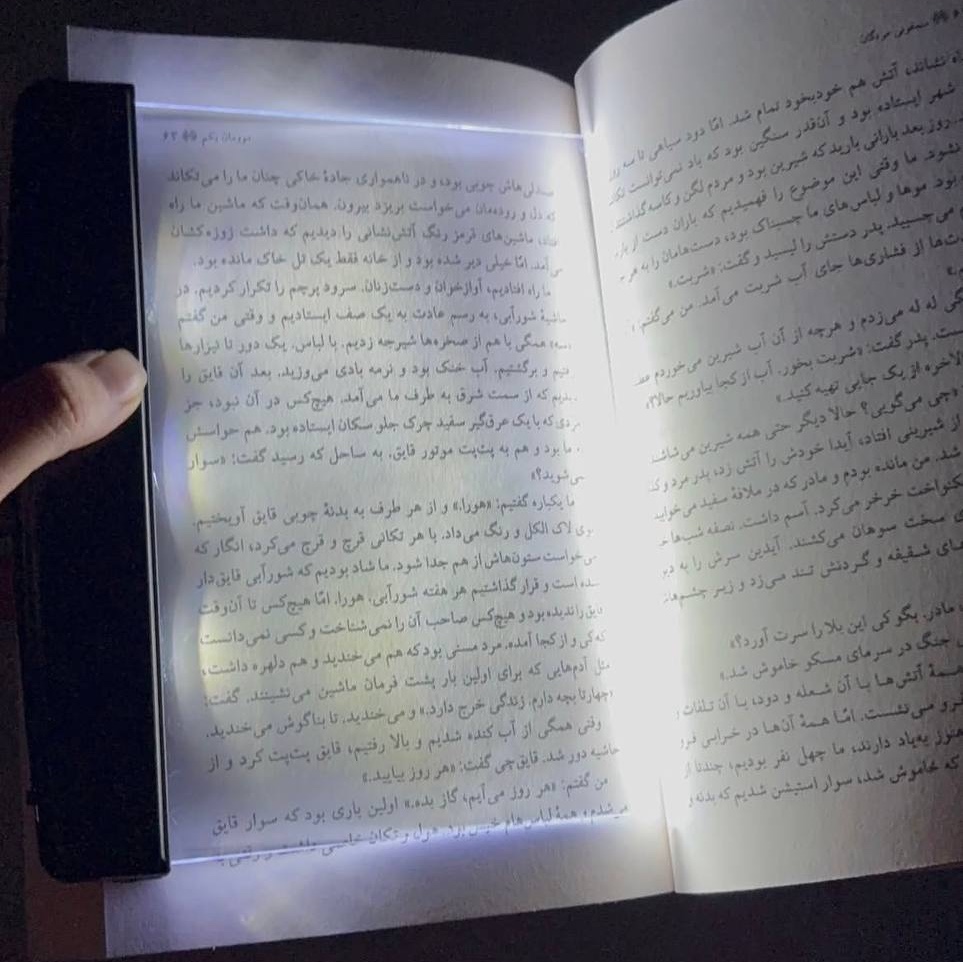 سمفونی مردگان
نشاند، آتش هم خودبخود تمام شد. امّا دود سیاهی تا سه روز
شهر ایستاده بود و آن‌قدر سنگین بود که باد نمی‌توانست تکانش
روز بعد بارانی بارید که شیرین بود و مردم لگن و کاسه گذاشتند
نشود. ما وقتی این موضوع را فهمیدیم که باران دست از
بود. موها و لباس‌های ما چسبناک بود، دست‌هامان را به هر
می‌چسبید. پدر دستش را لیسید و گفت: «شربت.»
از فشاری‌ها جای آب شربت می‌آمد. من می‌گفتم:
له له می‌زدم و هرچه از آن آب شیرین می‌خوردم
پدر گفت: «شربت بخور. آب از کجا بیاوریم حالا؟»
از یک جایی تهیه کنید.»
«چی می‌گویی؟ حالا دیگر حتی همه شیرین می‌شاشند
از شیرینی افتاد، آیدا خودش را آتش زد، پدر مرد و
شد. من مانده بودم و مادر که در ملافهٔ سفید می‌خوابید
خرخر می‌کرد. آسم داشت. نصفه شب‌ها
سخت سوهان می‌کشند. آیدین سرش را به
شقیقه و گردنش تند می‌زد و زیر چشم‌ها
مادر. بگو کی این بلا را سرت آورد؟»
جنگ در سرمای مسکو خاموش شد.»
همهٔ آتش‌ها با آن شعله و دود، با آن تلفات
می‌نشست. امّا همهٔ آن‌ها در خرابی
هنوز به‌یاد دارند، ما چهل نفر بودیم، چندتا از
که خاموش شد، سوار استیشن شدیم که بدنه و
موومان یکم ۶۳
صندلی‌هاش چوبی بود، و در ناهمواری جادهٔ خاکی چنان ما را می‌تکاند
که دل و روده‌مان می‌خواست بریزد بیرون. همان‌وقت که ماشین ما راه
افتاد، ماشین‌های قرمز رنگ آتش‌نشانی را دیدیم که داشت زوزه‌کشان
می‌آمد. امّا خیلی دیر شده بود و از خانه فقط یک تل خاک مانده بود.
ما راه افتادیم، آوازخوان و دست‌زنان. سرود پرچم را تکرار کردیم. در
حاشیهٔ شورآبی، به رسم عادت به یک صف ایستادیم و وقتی من گفتم
همگی با هم از صخره‌ها شیرجه زدیم. با لباس. یک دور تا نیزارها
رفتیم و برگشتیم. آب خنک بود و نرمه بادی می‌وزید. بعد آن قایق را
دیدیم که از سمت شرق به طرف ما می‌آمد. هیچ‌کس در آن نبود، جز
مردی که با یک عرق‌گیر سفید چرک جلو سکان ایستاده بود. هم حواسش
به ما بود و هم به پت‌پت موتور قایق. به ساحل که رسید گفت: «سوار
می‌شوید؟»
ما یکباره گفتیم: «هورا.» و از هر طرف به بدنهٔ چوبی قایق آویختیم.
بوی لاک الکل و رنگ می‌داد. با هر تکانی قرچ و قرچ می‌کرد، انگار که
می‌خواست ستون‌هاش از هم جدا شود. ما شاد بودیم که شورآبی قایق‌دار
شده است و قرار گذاشتیم هر هفته شورآبی. هورا. امّا هیچ‌کس تا آن‌وقت
قایق را ندیده بود و هیچ‌کس صاحب آن را نمی‌شناخت و کسی نمی‌دانست
که کی و از کجا آمده. مرد مسنی بود که هم می‌خندید و هم دلهره داشت،
مثل آدم‌هایی که برای اولین بار پشت فرمان ماشین می‌نشینند. گفت:
«چهار تا بچه دارم. زندگی خرج دارد.» و می‌خندید. تا بناگوش می‌خندید.
وقتی همگی از آب کنده شدیم و بالا رفتیم، قایق پت‌پت کرد و از
حاشیه دور شد. قایق‌چی گفت: «هر روز بیایید.»
من گفتم: «هر روز می‌آیم، گاز بده.» اولین باری بود که سوار قایق
می‌شدم و همهٔ لباس‌هام خیس بود.